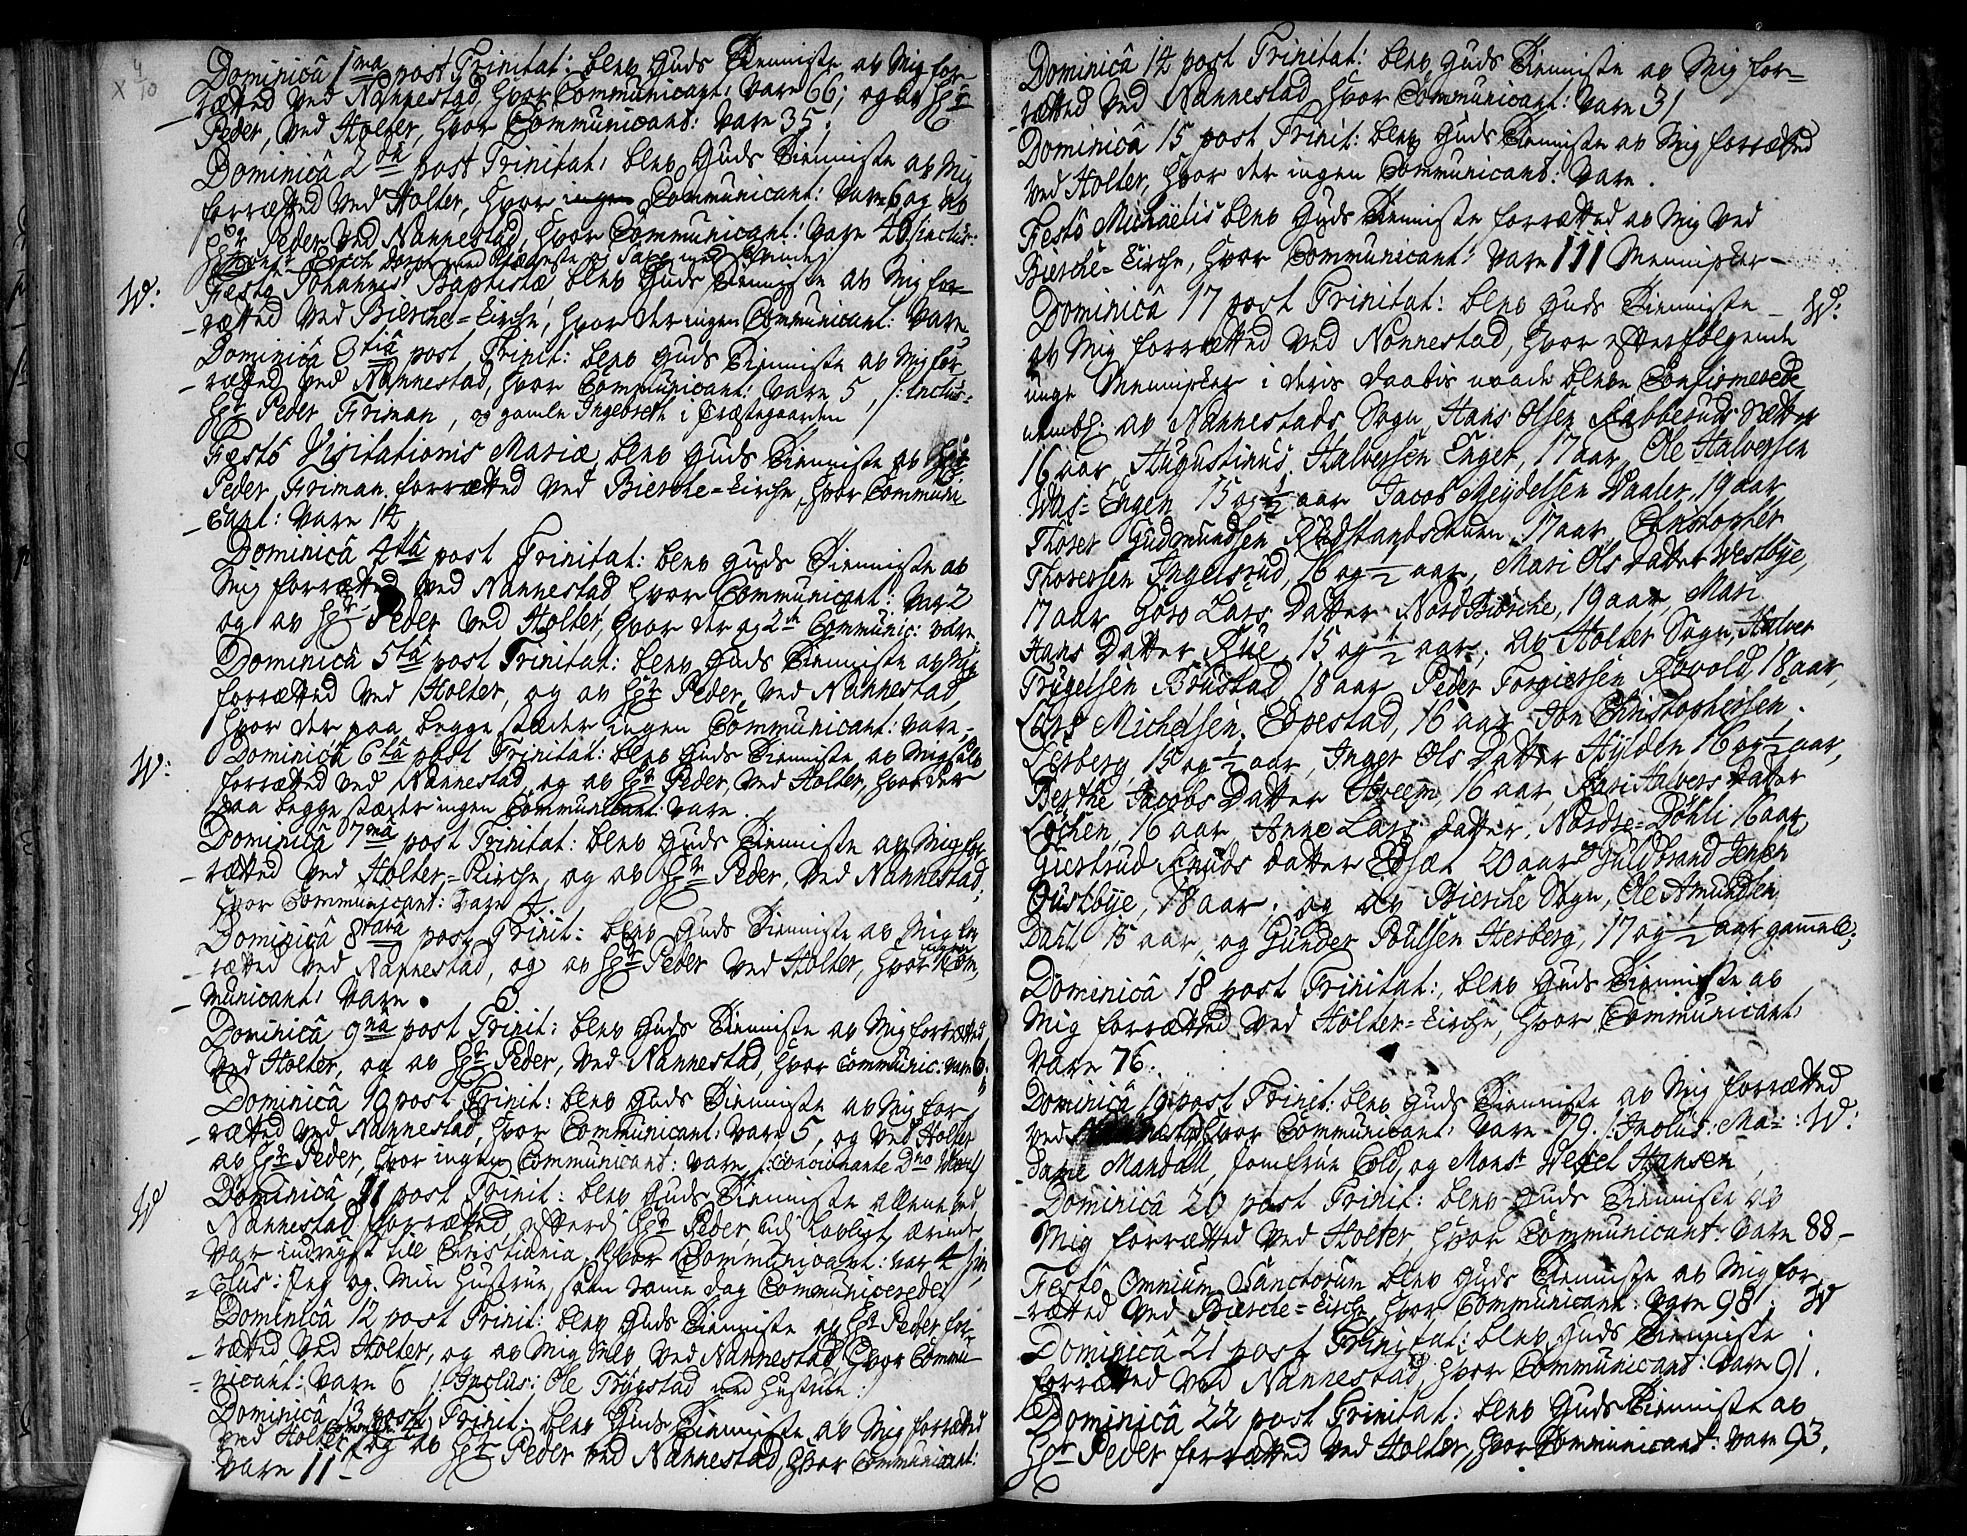 x 4/10
Dominicâ 1ma post Trinitat: blev Guds Tienniste av Mig for-
rætted ved Nannestad, hvor Communicant: vare 66; og av Hr
Peder, ved Holter, hvor Communicant: vare 35.
Dominicâ 2da post Trinitat: blev Guds Tienniste av Mig
forrætted ved Holter, hvor Communicant: vare 6 og av
Hr Peder ved Nannestad, hvor Communicant: vare 40 /inclus:
W:
Festo Johannis Baptistæ blev Guds Tienniste av Mig for-
rætted ved Biercke-Kirche, hvor der ingen Communicant: vare
Dominicâ 3tiâ post Trinit: blev Guds Tienniste av Mig for-
rætted ved Nannestad, hvor Communicant: vare 5, /: inclus:
Hr Peder Friman, og gamle Ingebreth i Præstegaarden
Festô Visitationis Mariæ blev Guds Tienniste av Hr
Peder Friman forrætted ved Biercke-Kirche, hvor Communi-
cant: vare 14
Dominicâ 4tâ post Trinitat: blev Guds Tienniste av
Mig forrætted ved Nannestad hvor Communicant: var 2
og av Hr Peder ved Holter, hvor der og 2de Communic: vare
Dominicâ 5tâ post Trinitat: blev Guds Tienniste av Mig
forrætted ved Holter, og av Hr Peder, ved Nannestad,
hvor der paa begge stæder ingen Communicant: vare-
W:
Dominicâ 6tâ post Trinitat: blev Guds Tienniste av Mig selv
forrætted ved Nannestad, og av Hr Peder, ved Holter, hvor der
paa begge stæder ingen Communicant: vare.
Dominicâ 7mâ post Trinitat: blev Guds Tienniste av Mig for-
rætted ved Holter-Kirche, og av Hr Peder, ved Nannestad,
hvor Communicant: vare 4
Dominicâ 8tavâ post Trinit: blev Guds Tienniste av Mig for-
rætted ved Nannestad, og av Hr Peder ved Holter, hvor ingen Com-
municant: vare.
Dominicâ 9nâ post Trinit: blev Guds Tienniste av Mig forrætted
ved Holter, og av Hr Peder, ved Nannestad, hvor Communic: vare 6.
Dominicâ 10 post Trinit: blev Guds Tienniste av Mig for-
rætted ved Nannestad, hvor Communicant: vare 5, og ved Holter
av Hr Peder, hvor ingen Communicant: vare, /: concionante Dno
W
Dominicâ 11 post Trinit: blev Guds Tienniste allene ved
Nannestad forrætted, efterdi Hr Peder, udj lovligt ærinde
var indreyst till Christiania, hvor Communicant: var 4 /in-
clus: Jeg og Min Hustrue, som samme dag Communicerede/
Dominicâ 12 post Trinit: blev Guds Tienniste av Hr Peder for-
rætted ved Holter, og av Mig selv ved Nannestad, hvor Commu-
nicant: vare 6 /: Inclus: Ole Trygstad med Hustrue:/
Dominicâ 13 post Trinit: blev Guds Tienniste av Mig forrætted
ved Holter, og av Hr Peder ved Nannestad, hvor Communicant:
vare 11-
Dominicâ 14 post Trinitat: blev Guds Tienniste av Mig for-
rætted ved Nannestad, hvor Communicant: vare 31
Dominicâ 15 post Trinit: blev Guds Tienniste av Mig forrætted
ved Holter, hvor der ingen Communicant: vare.
Festô Michaëlis blev Guds Tienniste forrætted av Mig ved
Biercke-Kirche, hvor Communicant: vare 111 Mennisker-
Dominicâ 17 post Trinitat: blev Guds Tienniste W:
av Mig forrætted ved Nannestad, hvor efterfølgende
unge Mennisker i deris Daabis naade bleve Confirmerede
nembl: av Nannestads Sogn, Hans Olsen Rabberuds Sætter
16 aar, Augustinus Halversen Enget, 17 aar, Ole Halversen
Was-Engen 15 og 1/2 aar Jacob Meydelsen Waaler, 19 aar,
Thorer Gudmundsen 17 aar, Christopher
Thoresen Ingelsrud, 16 og 1/2 aar, Mari Ols Datter Westbye,
17 aar Goro Lars Datter Nord Biercke, 19 aar Mari
Hans Datter Rue 15 og 1/2 aar; av Holter Sogn, Halver
Trugelsen Brustad 18 aar Peder Torgiersen Rovold, 18 aar,
Lars Michelsen Eppestad, 16 aar Jon Christophersen
15 og 1/2 aar, Inger Ols Datter Hylden 16 og 1/2 aar,
Berthe Jacobs Datter 16 aar, Kari Halvers Datter
Løchen, 16 aar Anne Lars Datter, Nordre-Døhli 16 aar,
Giertrud Knuds Datter 20 aar, Guldbrand Jensen
Oustbye, 18 aar; og av Biercke Sogn, Ole Amundsen
Dahl 15 aar, og Gunder Poulsen Herberg, 17 og 1/2 aar gamle;
Dominicâ 18 post Trinitat: blev Guds Tienniste av
Mig forrætted ved Holter-Kirche, hvor Communicant:
vare 76.
Dominicâ 19 post Trinit: blev Guds Tienniste av Mig forrætted
ved Nannestad, hvor Communicant: vare 99. /: Inclus: Ma- W:
dame Mandall, Jomfrue Cold, og Monsr Wessel Hansen
Dominicâ 20 post Trinit: blev Guds Tienniste av
Mig forrætted ved Holter, hvor Communicant: vare 88,-
Festô Omnium Sanctorum blev Guds Tienniste av Mig for-
rætted ved Biercke-Kirche, hvor Communicant: vare 98; W
Dominicâ 21 post Trinitat: blev Guds Tienniste
forrætted ved Nannestad, hvor Communicant: vare 91.
Dominicâ 22 post Trinitat: blev Guds Tienniste av
Hr Peder forrætted ved Holter, hvor Communicant: vare 93.